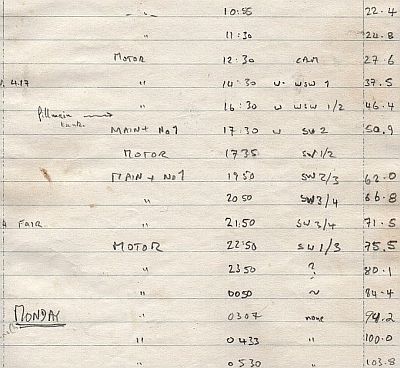 " 10:55 22.4
" 11:30 24.8
MOTOR 12:30 CAM 27.6
4.17 " 14:30 W. WSW 1 37.5
" 16:30 W WSW 1/2 46.4
fill main tank
MAIN + No 1 17:30 W SW 2 50.9
MOTOR 1735 SW 1/2
MAIN + No 1 1950 SW 2/3 62.0
" 2050 SW 3/4 66.8
FAIR " 21:50 SW 3/4 71.5
MOTOR 22:50 SW 1/3 75.5
" 2350 ? 80.1
" 0050 ~ 84.4
MONDAY " 0307 none 94.2
" 0433 " 100.0
" 0530 " 103.8